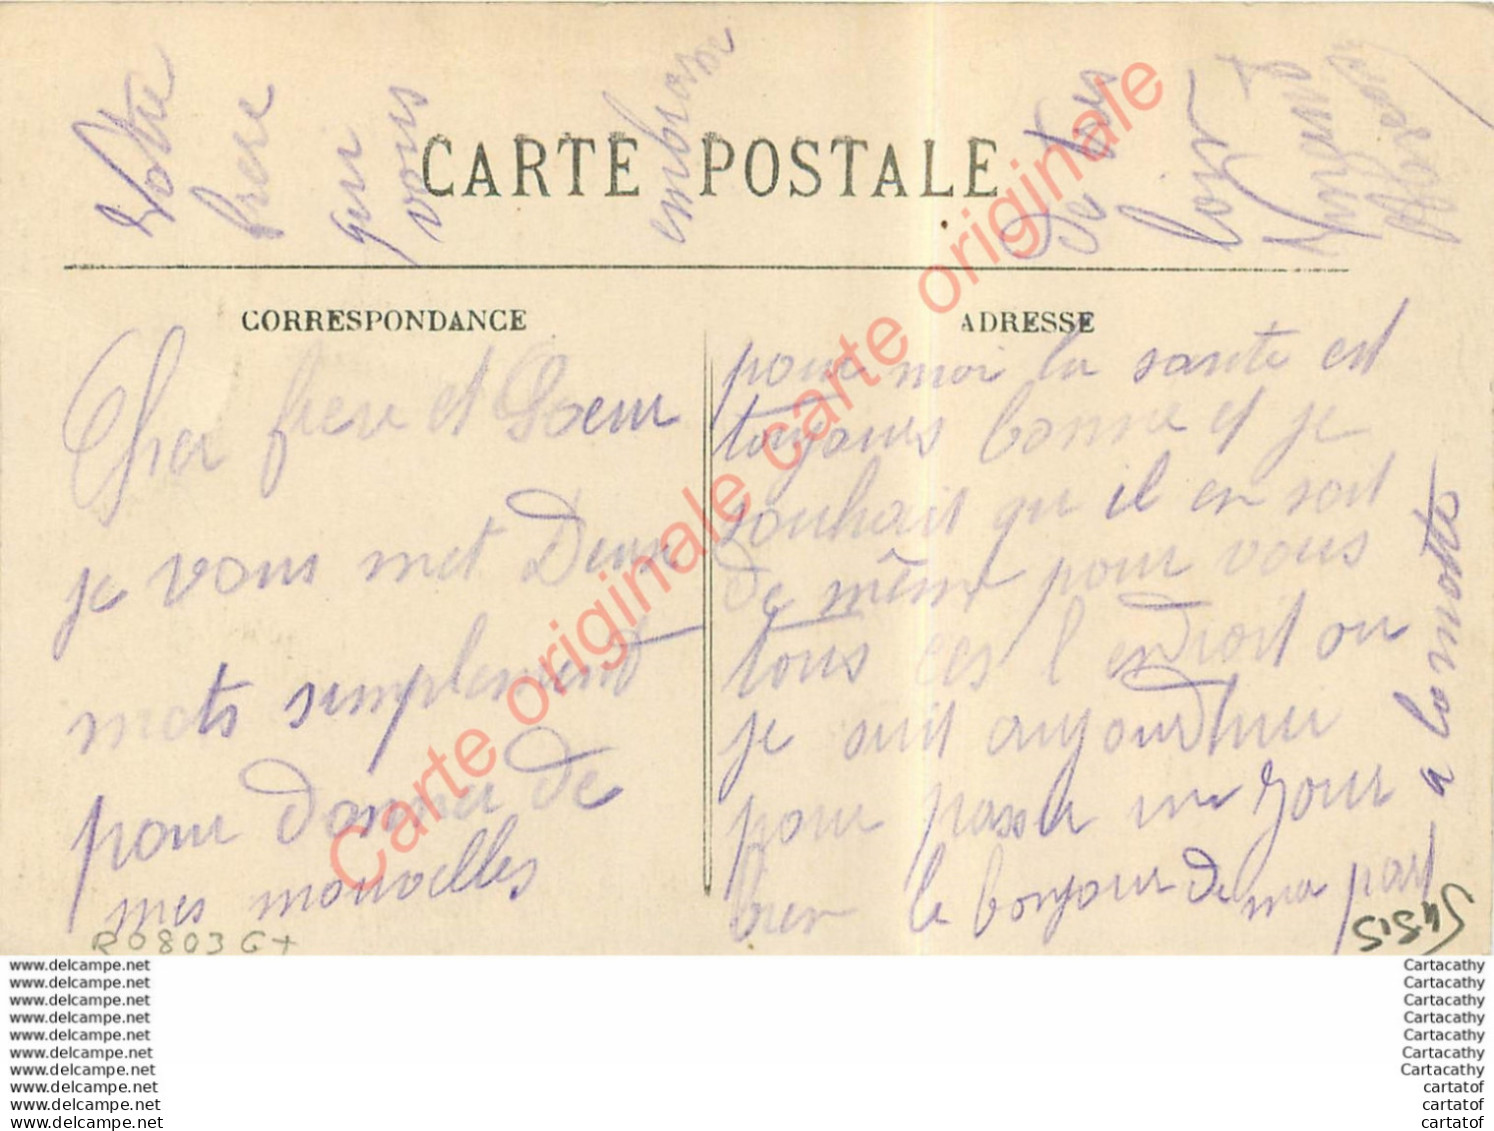 CARTE POSTALE
CORRESPONDANCE
ADRESSE
Cher frere et Soeur
je vous met Deux
mots simplement
pour donner de
mes nouvelles
pour moi la sante est
toujours bonne et je
souhait qu il en soit
de même pour vous
tous ces l endroit ou
je suit aujourdhui
pour passer un Jour
bien le bonjour de ma part
a la motte
Votre
frere
qui
vous
embrasse
De tous
R0803 G+
Carte originale carte originale Carte originale carte originale
www.delcampe.net
www.delcampe.net
www.delcampe.net
www.delcampe.net
www.delcampe.net
www.delcampe.net
www.delcampe.net
www.delcampe.net
www.delcampe.net
www.delcampe.net
Cartacathy
Cartacathy
Cartacathy
Cartacathy
Cartacathy
Cartacathy
Cartacathy
cartatof
cartatof
cartatof